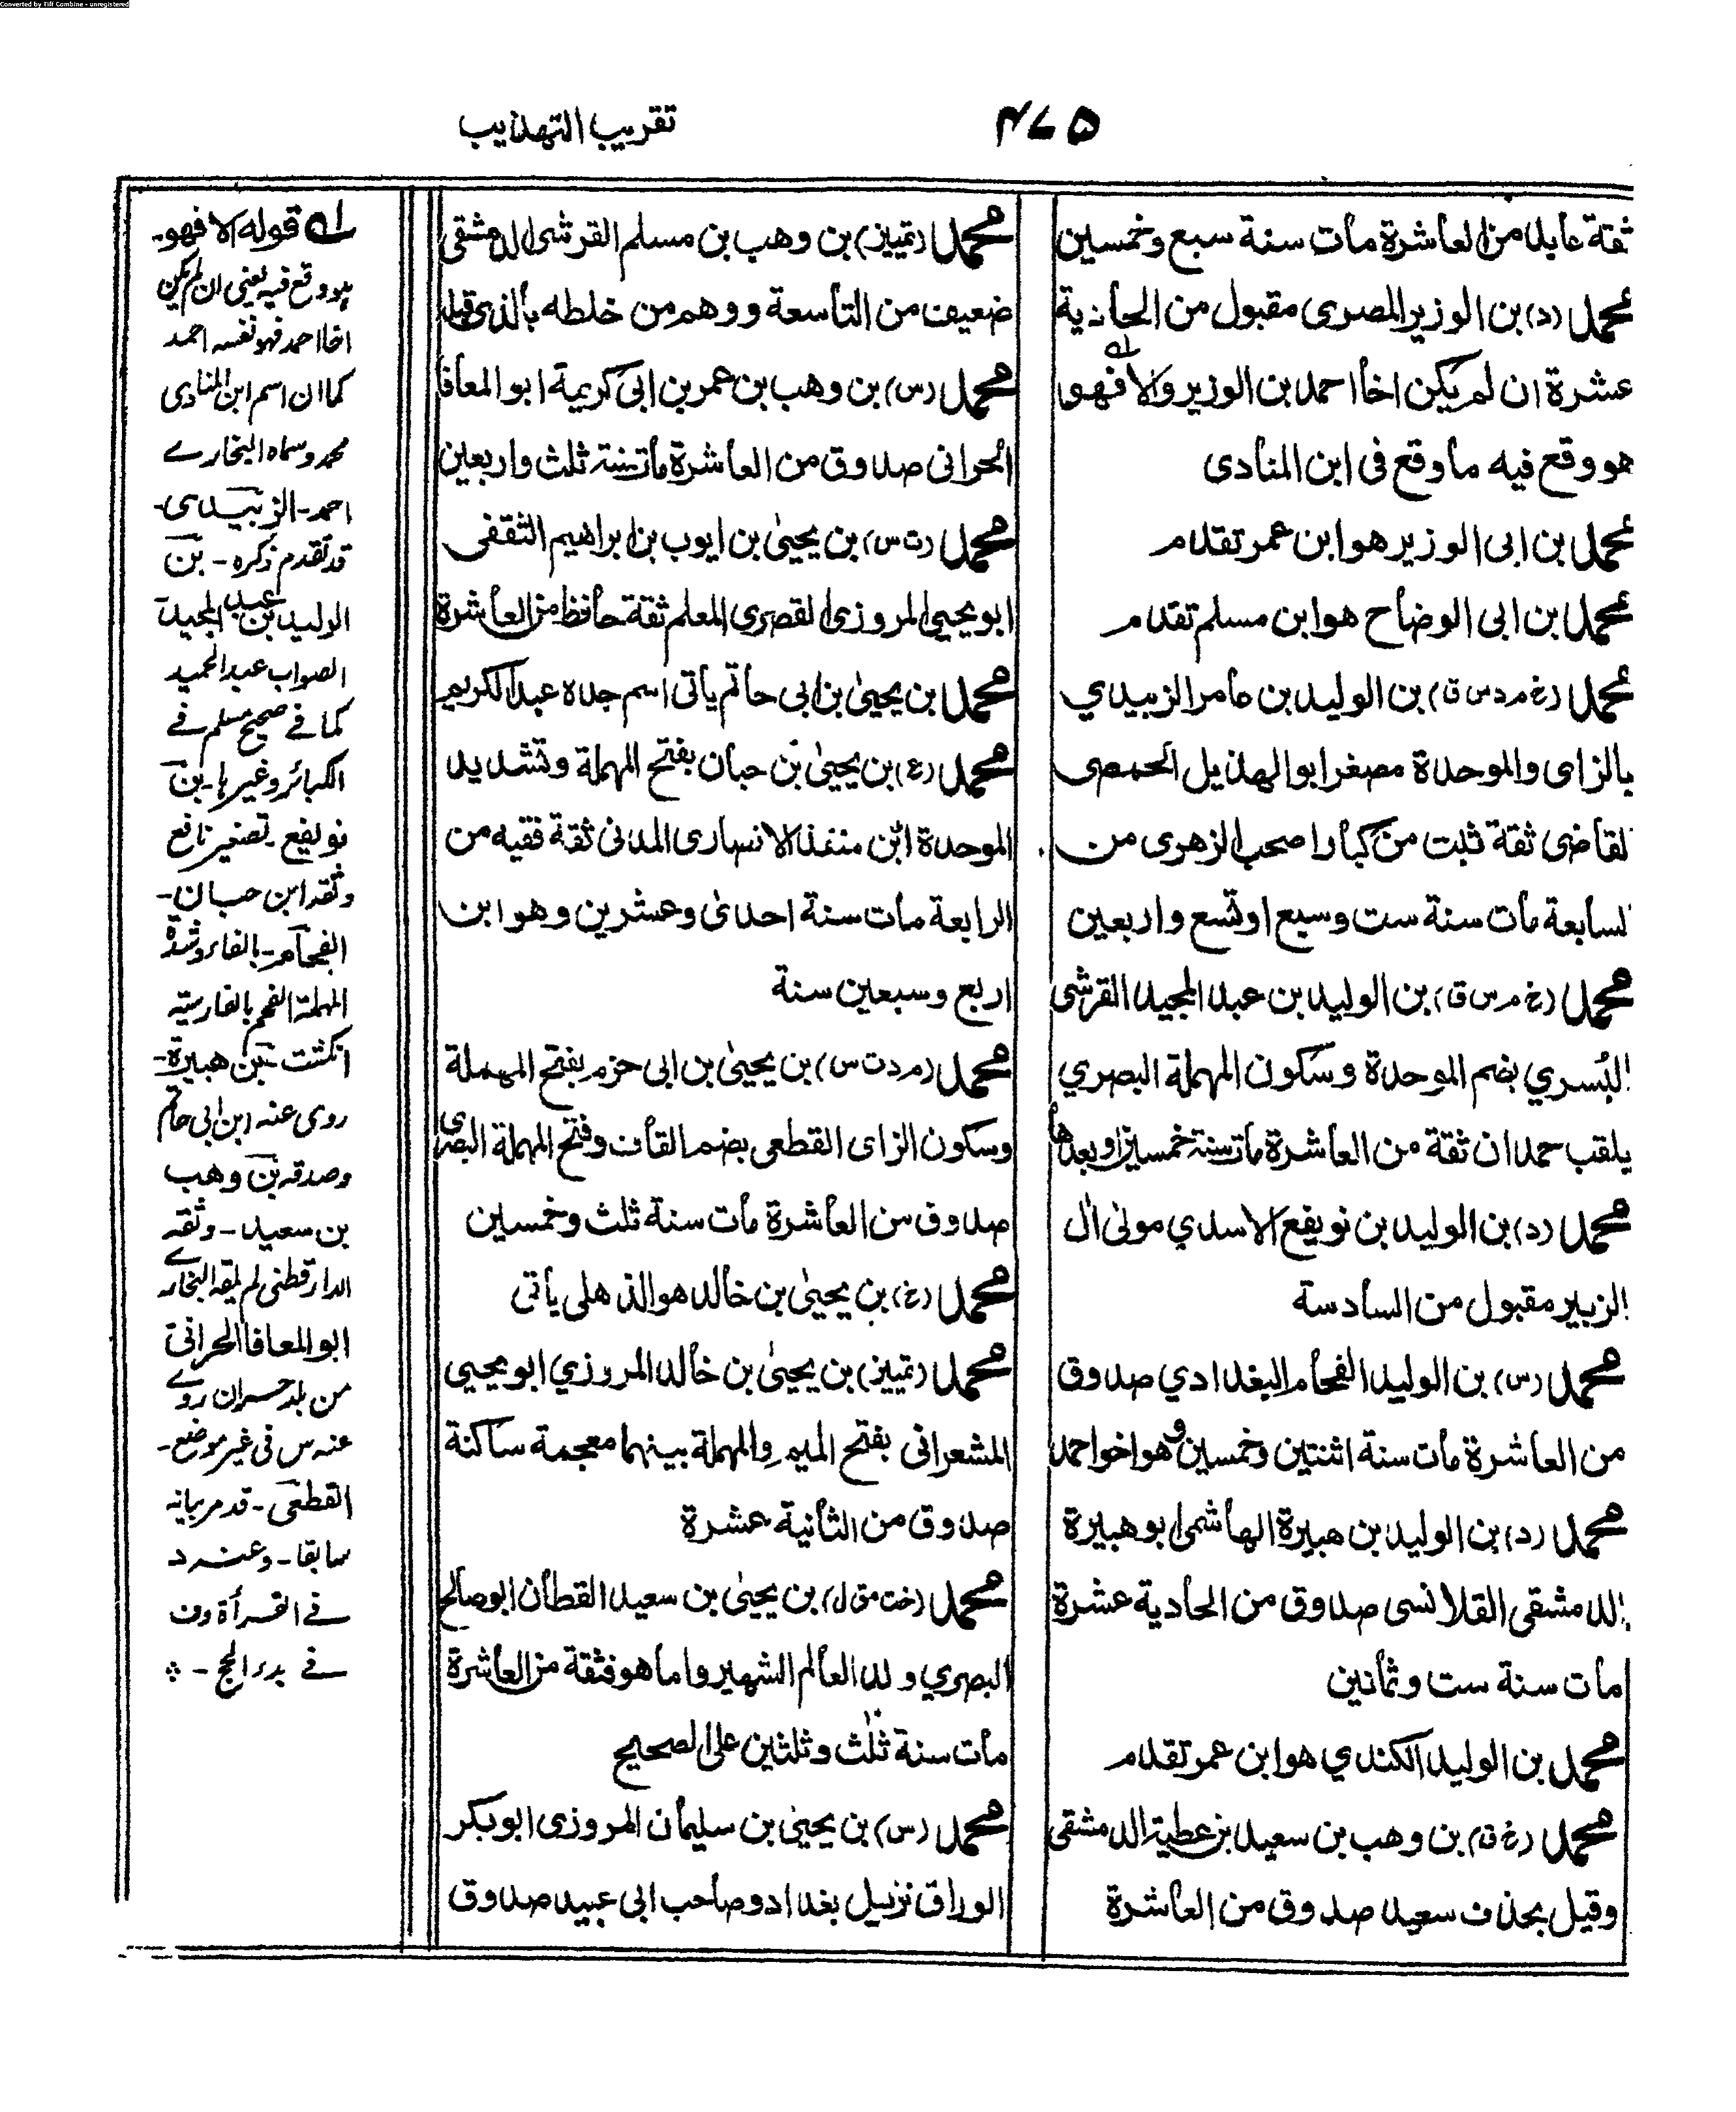 Converted by Tiff Combine - unregistered
۴۷۵
تقریب التهذیب
ثقة عابد من العاشرة مات سنة سبع وخمسين
محمد (د) بن الوزير المصرى مقبول من الحادية
عشرة ان لم يكن اخا احمد بن الوزير والا فهو
هو وقع فيه ما وقع فى ابن المنادى
محمد بن ابى الوزير هو ابن عمر تقدم
محمد بن ابى الوضاح هو ابن مسلم تقدم
محمد (خ م د س ق) بن الوليد بن عامر الزبيدي
بالزاى والموحدة مصغر ابو الهذيل الحمصى
لقاضى ثقة ثبت من كبار اصحاب الزهرى من
لسابعة مات سنة ست وسبع او تسع واربعين
محمد (خ م س ق) بن الوليد بن عبد المجيد القرشى
البُسري بضم الموحدة وسكون المهملة البصري
يلقب حمدان ثقة من العاشرة مات سنة خمسين او بعدها
محمد (د) بن الوليد بن نويفع الاسدي مولى ال
الزبير مقبول من السادسة
محمد (س) بن الوليد الفحام البغدادي صدوق
من العاشرة مات سنة اثنتين وخمسين وهو اخو احمد
محمد (د) بن الوليد بن هبيرة الهاشمى ابو هبيرة
الدمشقى القلانسى صدوق من الحادية عشرة
مات سنة ست وثمانين
محمد بن الوليد الكندي هو ابن عمر تقدم
محمد (خ ق) بن وهب بن سعيد بن عطية الدمشقى
وقيل بحذف سعيد صدوق من العاشرة
محمد (تمييز) بن وهب بن مسلم القرشى الدمشقى
ضعيف من التاسعة ووهم من خلطه بالذى قبله
محمد (س) بن وهب بن عمر بن ابى كريمة ابو المعافا
الحرانى صدوق من العاشرة مات سنة ثلث واربعين
محمد (ت س) بن يحيىٰ بن ايوب بن ابراهيم الثقفى
ابو يحيى المروزى القصرى المعلم ثقة حافظ من العاشرة
محمد بن يحيىٰ بن ابى حاتم ياتى اسم جده عبد الكريم
محمد (ع) بن يحيىٰ بن حبان بفتح المهملة وتشديد
الموحدة ابن منقذ الانصارى المدنى ثقة فقيه من
الرابعة مات سنة احدىٰ وعشرين وهو ابن
اربع وسبعين سنة
محمد (م د ت س) بن يحيىٰ بن ابى حزم بفتح المهملة
وسكون الزاى القطعى بضم القاف وفتح المهملة البصرى
صدوق من العاشرة مات سنة ثلث وخمسين
محمد (خ) بن يحيىٰ بن خالد هو الذهلى ياتى
محمد (تمييز) بن يحيىٰ بن خالد المروزي ابو يحيى
المشعرانى بفتح الميم والمهملة بينهما معجمة ساكنة
صدوق من الثانية عشرة
محمد (خت مق ل) بن يحيىٰ بن سعيد القطان ابو صالح
البصري ولد العالم الشهير واما هو فثقة من العاشرة
مات سنة ثلٰث وثلثين على الصحيح
محمد (س) بن يحيىٰ بن سليمان المروزى ابو بكر
الوراق نزيل بغداد وصاحب ابى عبيد صدوق
لہ قوله الا فهو-
هو وقع فيه يعنى ان لم يكن
اخا احمد فهو نفسه احمد
كما ان اسم ابن المنادى
محمد وسماه البخارے
احمد - الزبيدى-
قد تقدم ذكره - بن
الوليد بن عبد المجيد
الصواب عبد الحميد
كما فے صحيح مسلم فے
الكبائر وغيرها - بن
نويفع - تصغير نافع
وثقه ابن حبان-
الفحام - بالفاء وشدة
المهملة الفحم بالفارسية
انگشت - بن هبيرة-
روى عنه ابن ابى حاتم
وصدقه بن وهب
بن سعيد - وثقه
الدارقطنى لم يلقه البخارے
ابو المعافا الحرانى
من بلد حران روے
عنه س فى غير موضع-
القطعى - قد مر بيانه
سابقا - وعنه د
فے القرأة وف
فے بدء الحج -